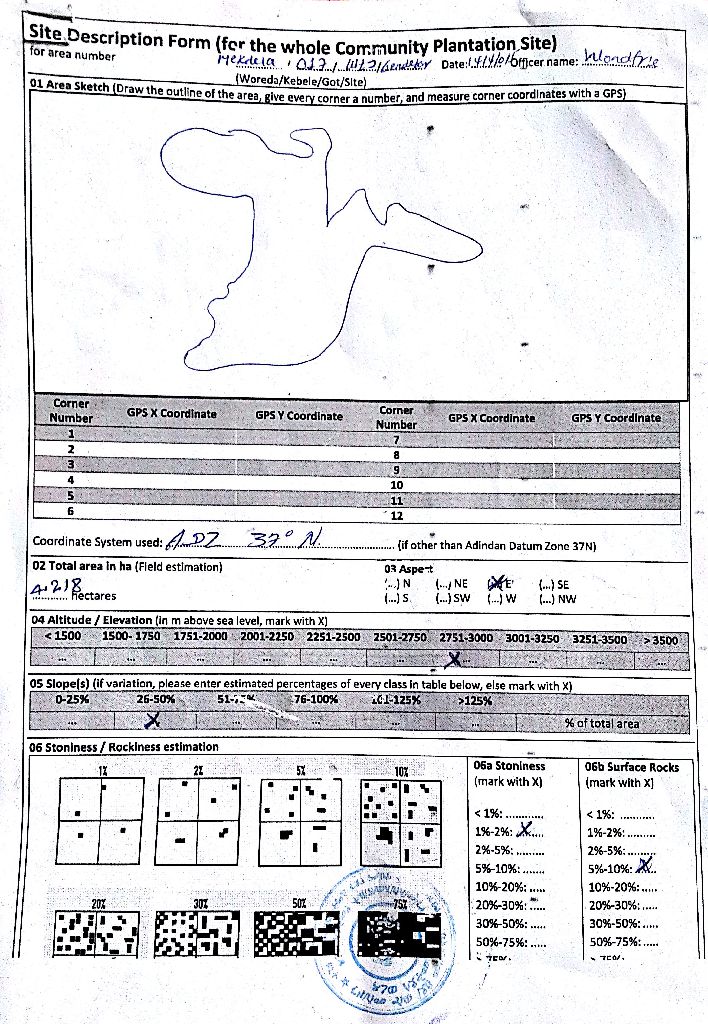 Site Description Form (for the whole Community Plantation Site)
for area number Mekdela, 017, Date: Officer name: Wondfrie
(Woreda/Kebele/Got/Site)
01 Area Sketch (Draw the outline of the area, give every corner a number, and measure corner coordinates with a GPS)
Corner Number GPS X Coordinate GPS Y Coordinate Corner Number GPS X Coordinate GPS Y Coordinate
1 7
2 8
3 9
4 10
5 11
6 12
Coordinate System used: ADZ 37° N (if other than Adindan Datum Zone 37N)
02 Total area in ha (Field estimation) 03 Aspect
4.218 Hectares
(...) N (...) NE (X) E (...) SE
(...) S (...) SW (...) W (...) NW
04 Altitude / Elevation (in m above sea level, mark with X)
< 1500 1500-1750 1751-2000 2001-2250 2251-2500 2501-2750 2751-3000 3001-3250 3251-3500 > 3500
... ... ... ... ... ... X ... ... ...
05 Slope(s) (if variation, please enter estimated percentages of every class in table below, else mark with X)
0-25% 26-50% 51-75% 76-100% 101-125% >125%
... X ... ... ... ... % of total area
06 Stoniness / Rockiness estimation
1% 2% 5% 10%
20% 30% 50% 75%
06a Stoniness
(mark with X)
< 1%: ..........
1%-2%: X....
2%-5%: ........
5%-10%: .......
10%-20%: .....
20%-30%: .....
30%-50%: ......
50%-75%: ......
> 75%:
06b Surface Rocks
(mark with X)
< 1%: ..........
1%-2%: ........
2%-5%: ........
5%-10%: X..
10%-20%: .....
20%-30%: .....
30%-50%: ......
50%-75%: .....
> 75%: